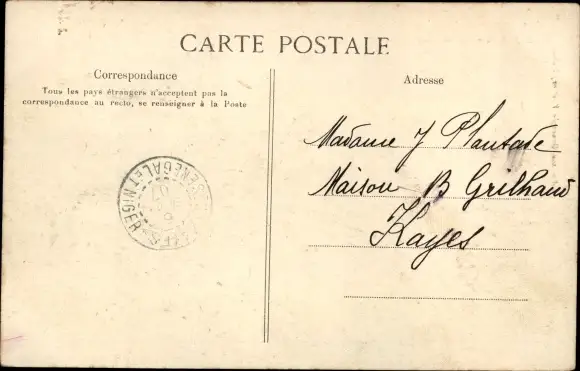 CARTE POSTALE
Correspondance
Tous les pays étrangers n'acceptent pas la
correspondance au recto, se renseigner à la Poste
Adresse
Madame J Plantade
Maison B Grilhaud
Kayes
SÉNÉGAL ET NIGER